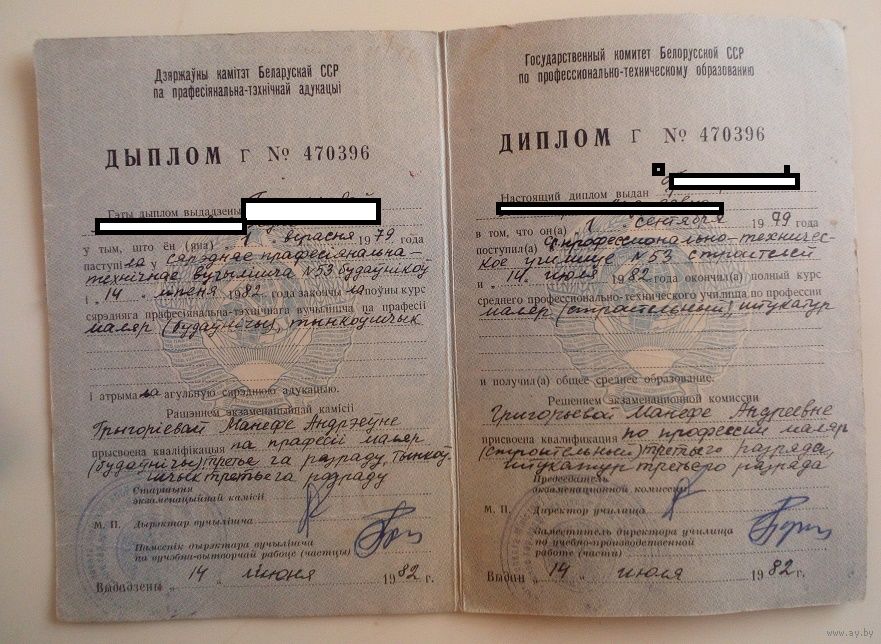 Дзяржаўны камітэт Беларускай ССР
па прафесіянальна-тэхнічнай адукацыі
ДЫПЛОМ Г № 470396
Гэты дыплом выдадзены
у тым, што ён (яна) 1 верасня 1979 года
паступіла у сярэдняе прафесіянальна-
тэхнічнае вучылішча №53 будаўнікоў
і 14 ліпеня 1982 года закончыла поўны курс
сярэдняга прафесіянальна-тэхнічнага вучылішча па прафесіі
маляр (будаўнічы), тынкоўшчык
і атрымала агульную сярэднюю адукацыю.
Рашэннем экзаменацыйнай камісіі
Грыгор'евай Манефе Андрэеўне
прысвоена кваліфікацыя па прафесіі маляр
(будаўнічы) трэцьега разраду, тынкоў-
шчык трэцьега разраду
Старшыня
экзаменацыйнай камісіі
М. П. Дырэктар вучылішча
Намеснік дырэктара вучылішча
па вучэбна-вытворчай рабоце (часткі)
Выдадзены 14 июня 1982 г.
Государственный комитет Белорусской ССР
по профессионально-техническому образованию
ДИПЛОМ Г № 470396
Настоящий диплом выдан
в том, что он(а) 1 сентября 1979 года
поступил(а) в профессионально-техничес-
кое училище №53 строителей
и 14 июля 1982 года окончил(а) полный курс
среднего профессионально-технического училища по профессии
маляр (строительный) штукатур
и получил(а) общее среднее образование.
Решением экзаменационной комиссии
Григорьевой Манефе Андреевне
присвоена квалификация по профессии маляр
(строительный) третьего разряда,
штукатур третьего разряда
Председатель
экзаменационной комиссии
М. П. Директор училища
Заместитель директора училища
по учебно-производственной
работе (части)
Выдан 14 июля 1982 г.
www.ay.by